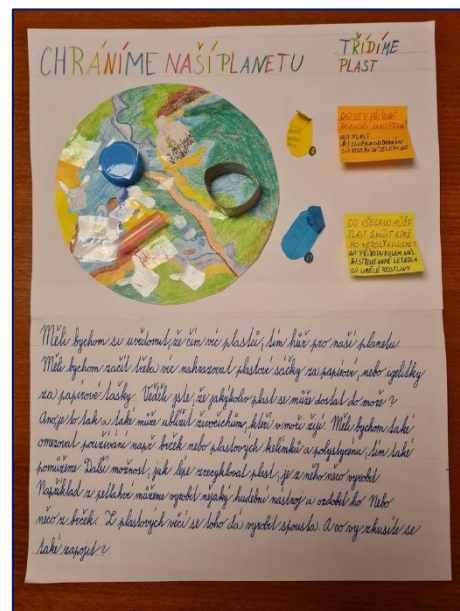 CHRÁNÍME NAŠÍ PLANETU
TŘÍDÍME
PLAST
CO SE V PŘÍRODĚ
ROZLOŽÍ JAKO PRVNÍ
a) PLAST
b) SLUPKA OD BANÁNU
c) ROZBITÁ TELEVIZE
CO VŠECHNO MŮŽE
PLAST ZNIČIT KDYŽ
HO NEROZLOŽUJEME
a) PŘÍRODU KOLEM NÁS
b) STROJE NAPŘ. LETADLA
c) UMĚLÉ ROSTLINY
Měli bychom si uvědomit, že čím víc plastů, tím hůř pro naši planetu.
Měli bychom začít třeba víc nahrazovat plastové sáčky za papírové, nebo igelitky
za papírové tašky. Věděli jste, že jakýkoliv plast se může dostat do moře?
Ano, je to tak a také může ublížit živočichům, kteří v moři žijí. Měli bychom také
omezovat používání např. brček nebo plastových kelímků a polystyrenu, tím také
pomůžeme. Další možnost, jak lépe zrecyklovat plast, je z něho něco vyrobit.
Například z petlahví můžeme vyrobit nějaký hudební nástroj a ozdobit ho. Nebo
něco z brček. Z plastových věcí se toho dá vyrobit spousta. A co vy zkusíte se
také zapojit?